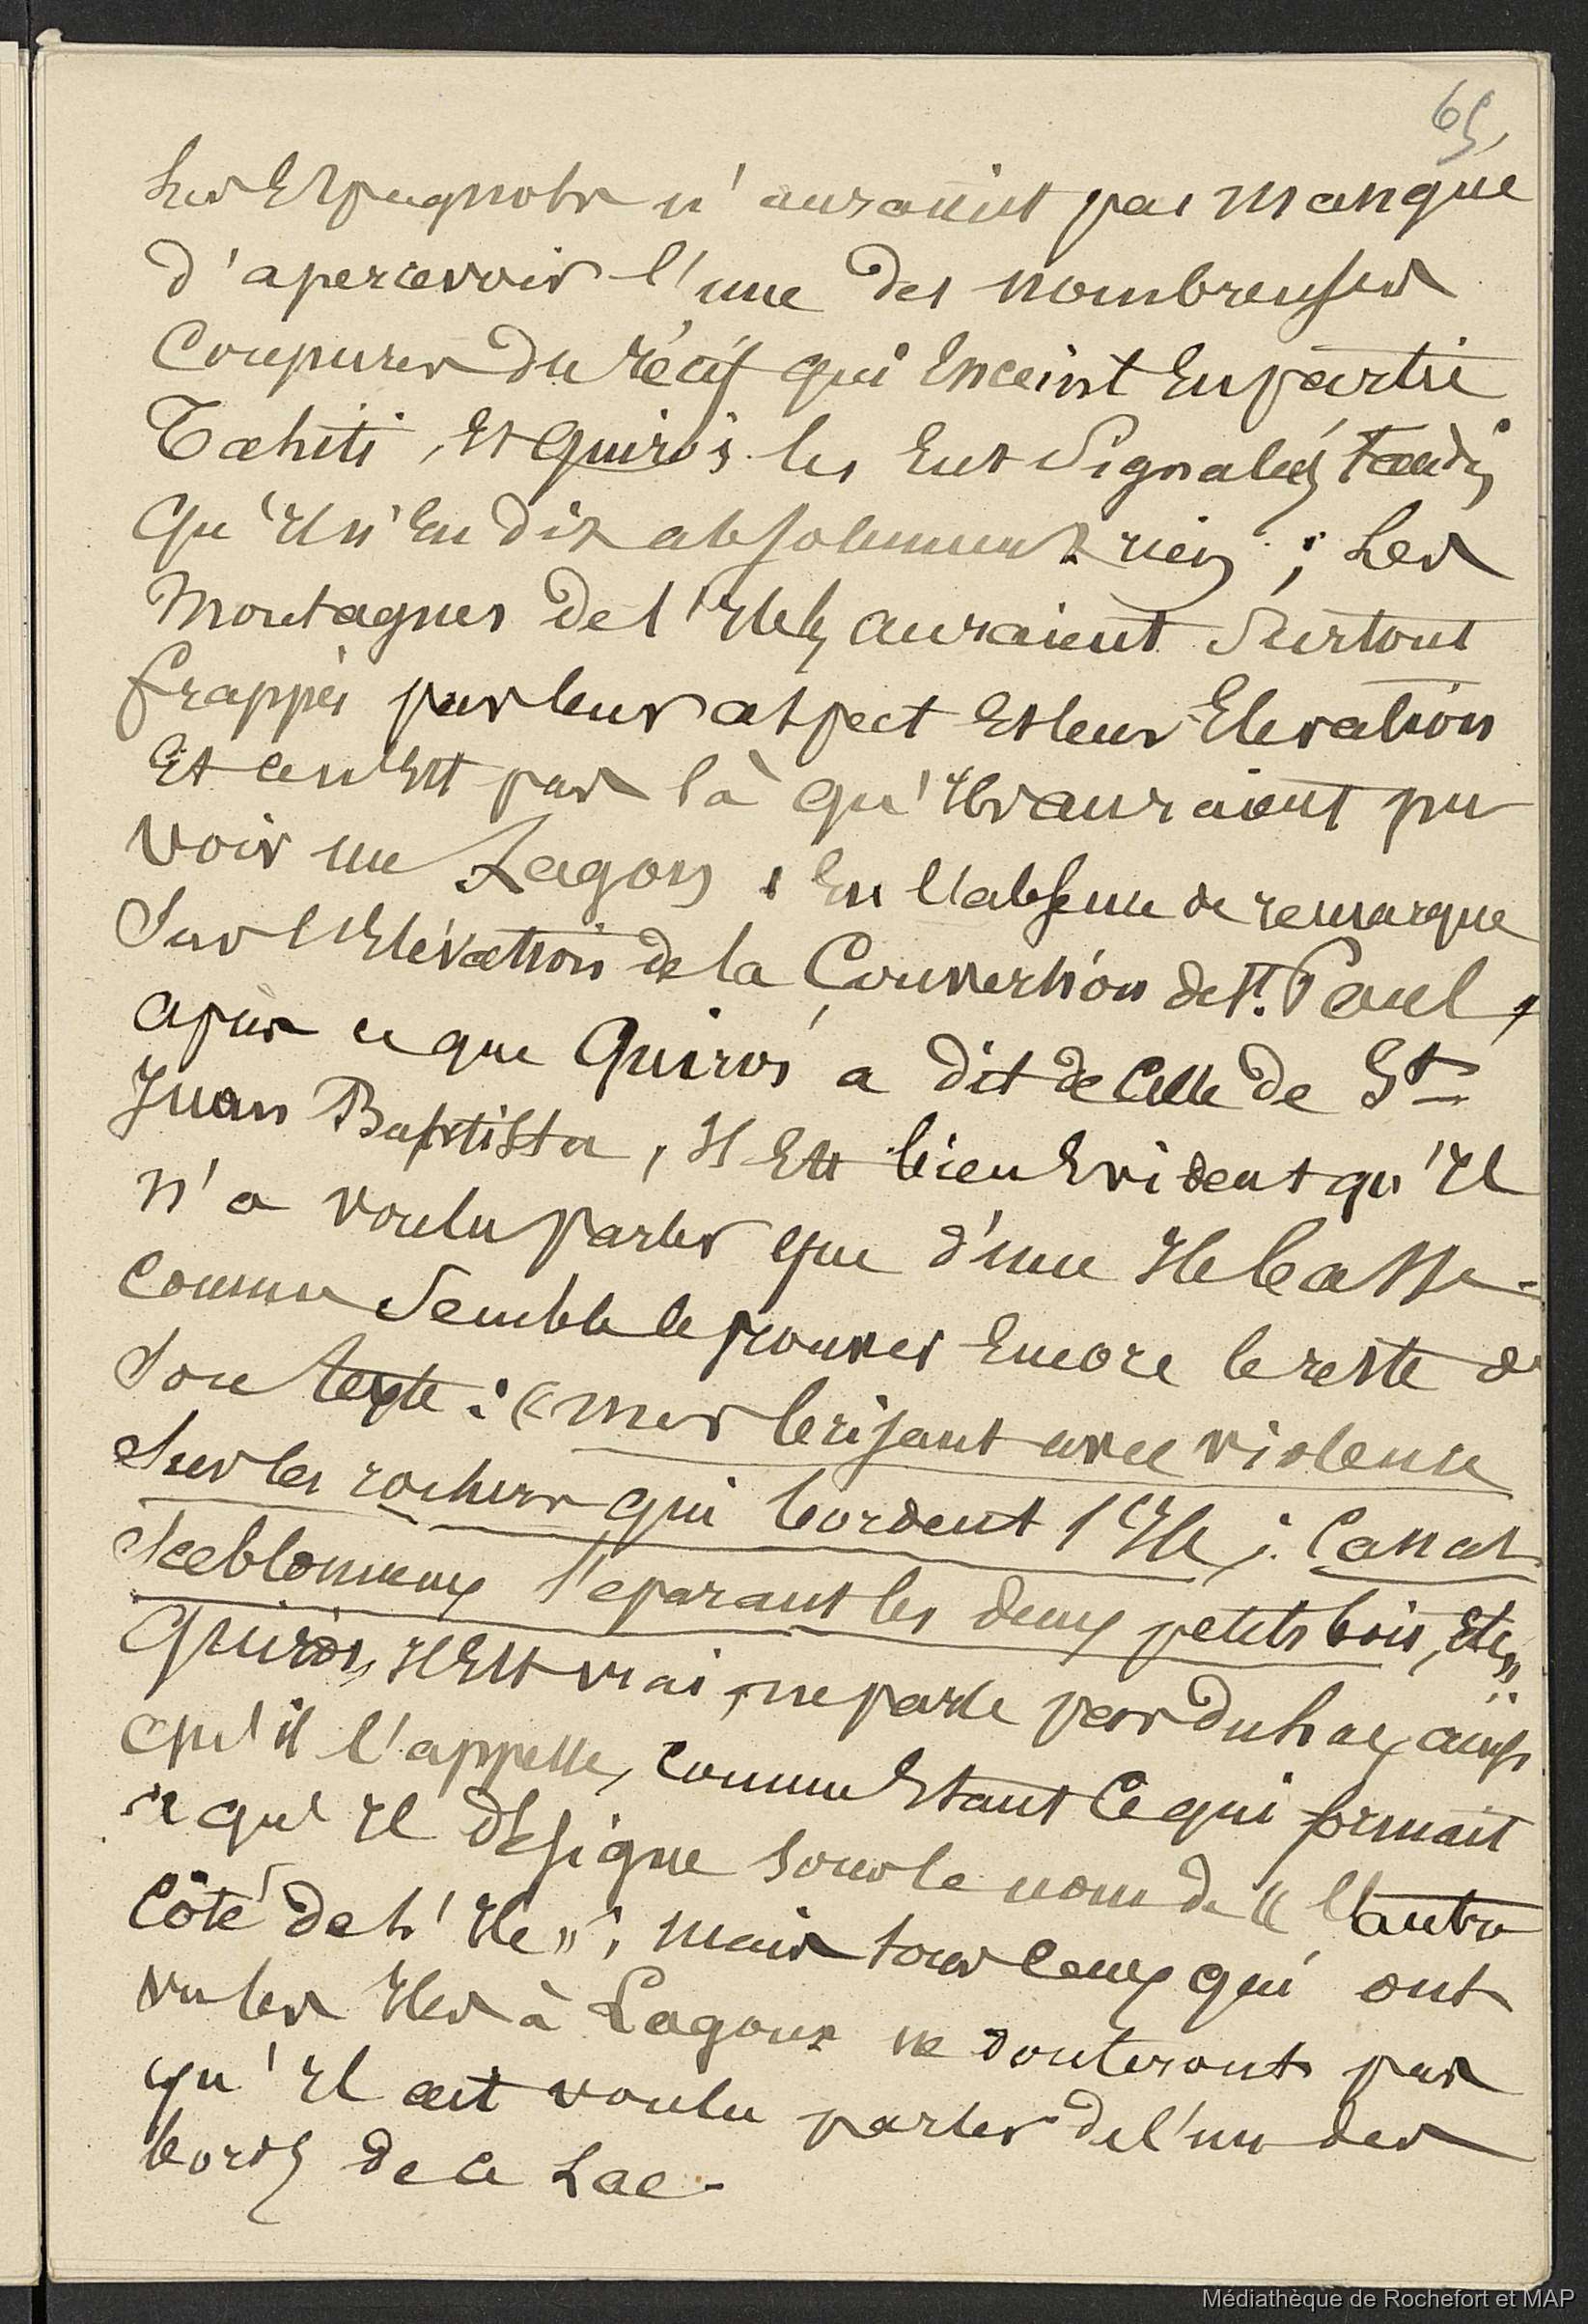 65
Les Espagnols n'auraient pas manqué
d'apercevoir l'une des nombreuses
Coupures du récif qui Enceint En partie
Tahiti, Et Quiros les Eut Signalés, tandis
qu'Il n'En dit absolument rien ; Les
Montagnes de l'Ile les auraient Surtout
frappés par leur aspect Et leur Elevation
Et ce n'Est pas là qu'Ils auraient pu
voir un Lagon ; En l'absence de remarque
Sur l'Elévation de la Conversion de St. Paul,
après ce que Quiros a dit de Celle de St
Juan Baptista, Il Est bien Evident qu'Il
n'a voulu parler que d'une Ile basse -
Comme Semble le prouver Encore le reste de
Son texte : « mer brisant avec violence
Sur les rochers qui bordent l'Ile ; Canal
Sablonneux Separant les deux petits bois, Etc »
Quiros, Il Est vrai, ne parle pas du Lac, ainsi
qu'il l'appelle, comme Etant Ce qui formait
ce qu'Il désigne sous le nom de « l'autre
Côté de L'Ile » ; mais tous Ceux qui ont
vu les Iles à Lagons ne douteront pas
qu'Il ait voulu parler de l'un des
bords de ce Lac -
Médiathèque de Rochefort et MAP